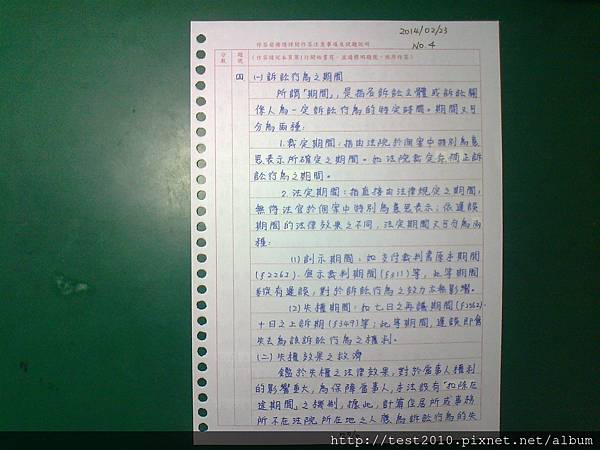 2014/02/23
No. 4
分數
題號
(作答請從本頁第1行開始書寫，並請標明題號，依序作答)
四
(一)訴訟行為之期間
所謂「期間」，是指各訴訟主體或訴訟關
係人為一定訴訟行為的特定時間。期間又可
分為兩種:
1.裁定期間:指由法院於個案中特別為意
思表示所確定之期間。如法院裁定命補正訴
訟行為之期間。
2.法定期間:指直接由法律規定之期間，
無待法官於個案中特別為意思表示;依遲誤
期間的法律效果之不同，法定期間又可分為兩
種:
(1)訓示期間:如交付裁判書原本期間
(§226I)、宣示裁判期間(§311)等，此等期間
縱有遲誤，對於訴訟行為之效力亦無影響。
(2)失權期間:如七日之再議期間
十日之上訴期(§349)等;此等期間，遲誤即會
失去為該訴訟行為之權利。
(二)失權效果之救濟
鑑於失權之法律效果，對於當事人權利
的影響重大，為保障當事人，本法設有「扣除在
途期間」之機制，據此，計算住居所或事務
所不在法院所在地之人應為訴訟行為的失
http://test2010.pixnet.net/album